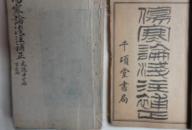 傷寒論淺注補正
傷寒論淺注補正
千頃堂書局